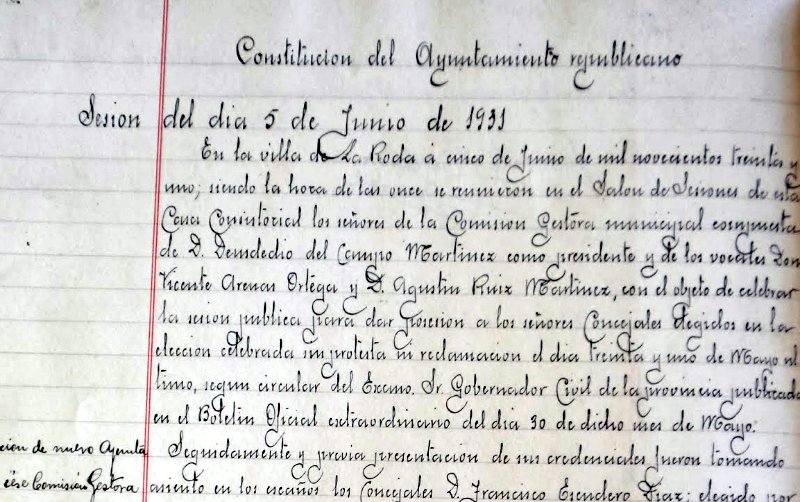 Constitucion del Ayuntamiento republicano
Sesion del dia 5 de Junio de 1931
En la villa de La Roda á cinco de Junio de mil novecientos treinta y
uno; siendo la hora de las once se reunieron en el Salon de Sesiones de esta
Casa Consistorial los señores de la Comision Gestora municipal compuesta
de D. Deusdedio del Campo Martinez como presidente y de los vocales Don
Vicente Arenas Ortega y D. Agustin Ruiz Martinez, con el objeto de celebrar
la sesion publica para dar posesion a los señores Concejales elegidos en la
eleccion celebrada sin protesta ni reclamacion el dia treinta y uno de Mayo ul
timo, segun circular del Excmo. Sr. Gobernador Civil de la provincia publicada
en el Boletin Oficial extraordinario del dia 30 de dicho mes de Mayo.
cion de nuevo Ayunta Seguidamente y previa presentacion de sus credenciales fueron tomando
cése Comisión Gestora asiento en los escaños los Concejales D. Francisco Escudero Diaz; elegido por